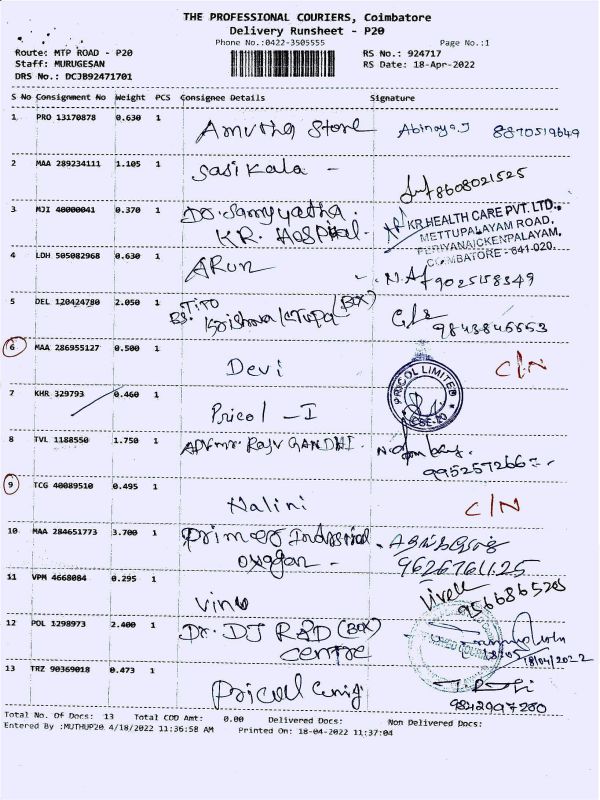 THE PROFESSIONAL COURIERS, Coimbatore
Delivery Runsheet - P20
Phone No.:0422-3505555 Page No.:1
Route: MTP ROAD - P20 RS No.: 924717
Staff: MURUGESAN RS Date: 18-Apr-2022
DRS No.: DCJB92471701
S No Consignment No Weight PCS Consignee Details Signature
1 PRO 13170878 0.630 1 Amutha Store Abinaya.J 8870519649
2 MAA 289234111 1.105 1 Sasikala - 8608021525
3 MJI 40000041 0.370 1 DR.Samyuktha.
K.R. Hospital.
KR HEALTH CARE PVT. LTD.,
METTUPALAYAM ROAD,
PERIYANAICKENPALAYAM,
COIMBATORE - 641 020.
4 LDH 505082968 0.630 1 ARUN N.A 9025158349
5 DEL 120424780 2.050 1 TITO (BOX)
Krishna 9843846553
6 MAA 286955127 0.500 1 Devi C/N
7 KHR 329793 0.460 1 Pricol - I PRICOL LIMITED CBE-20
8 TVL 1188550 1.750 1 ADV mr. Rajv GANDHI.
9 TCG 40089510 0.495 1 Nalini C/N
10 MAA 284651773 3.700 1 Primer Industrial
oxygen - 9626761125
11 VPM 4668084 0.295 1 Vinu Vivek 9566865205
12 POL 1298973 2.400 1 Dr. DJ RAD (BOX)
centre 18/04/2022
13 TRZ 90369018 0.473 1 Pricoll 9842997280
Total No. Of Docs: 13 Total COD Amt: 0.00 Delivered Docs: Non Delivered Docs:
Entered By :MUTHUP20 4/18/2022 11:36:58 AM Printed On: 18-04-2022 11:37:04